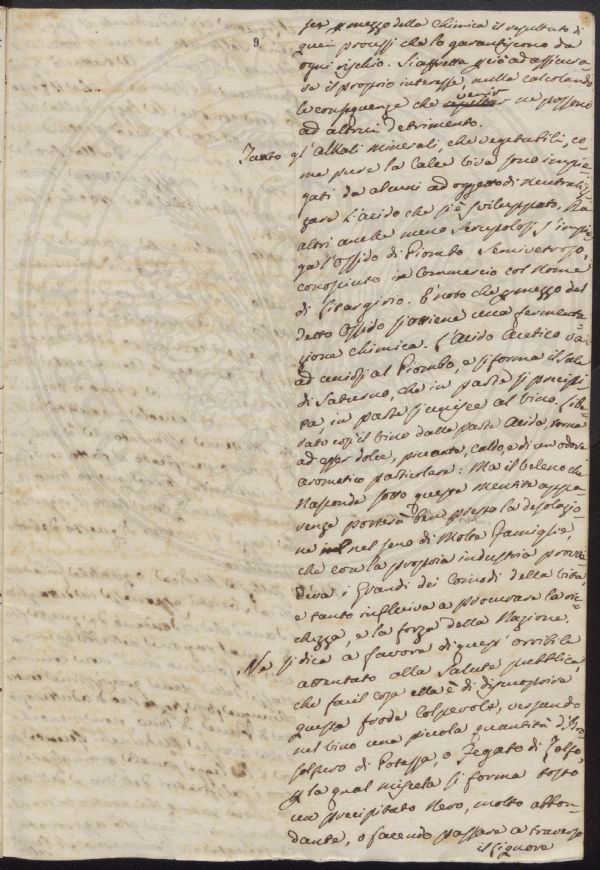 9
per mezzo della Chimica il resultato di
quei processi che lo garantiscono da
ogni rischio. Si affretta più ad assicura-
re il proprio interesse, nulla calcolando
le conseguenze che venir ne possono
ad altrui detrimento.
Tanto gl'Alkali minerali, che vegetabili, co-
me pure la Calce viva sono impie-
gati da alcuni ad oggetto di neutraliz-
zare l'acido che si è sviluppato. Da
altri anche meno scrupolosi s'impie-
ga l'ossido di Piombo Semivetroso,
conosciuto in Commercio col nome
di Litargirio. E' noto che p mezzo del
detto Ossido si ottiene una fermenta-
zione chimica. L'Acido Acetico va
ad unirsi al Piombo, e si forma il Sale
di Saturno, che in parte si precipi-
ta, in parte si unisce al vino. Libe-
rato così il vino dalla parte Acida, torna
ad esser dolce, piccante, caldo, e di un odore
aromatico particolare: Ma il veleno che
nasconde sotto queste mentite appa-
renze porterà ben presto la desolazio-
ne nel seno di molte Famiglie,
che con la propria industria
i Grandi dei Comodi della vita
e tanto influiva a procurare la ric-
chezza, e la forza della Nazione.
Ne si dica a favore di quest'orribile
attentato alla Salute pubblica,
che facil cosa ella è di discuoprire
questa frode colpevole, versando
nel vino una piccola quantità d'Idro-
solfuro di Potassa, o Fegato di Zolfo,
p la qual miscela si forma tosto
un precipitato nero, molto abbon-
dante, o facendo passare a traverso
il liquore